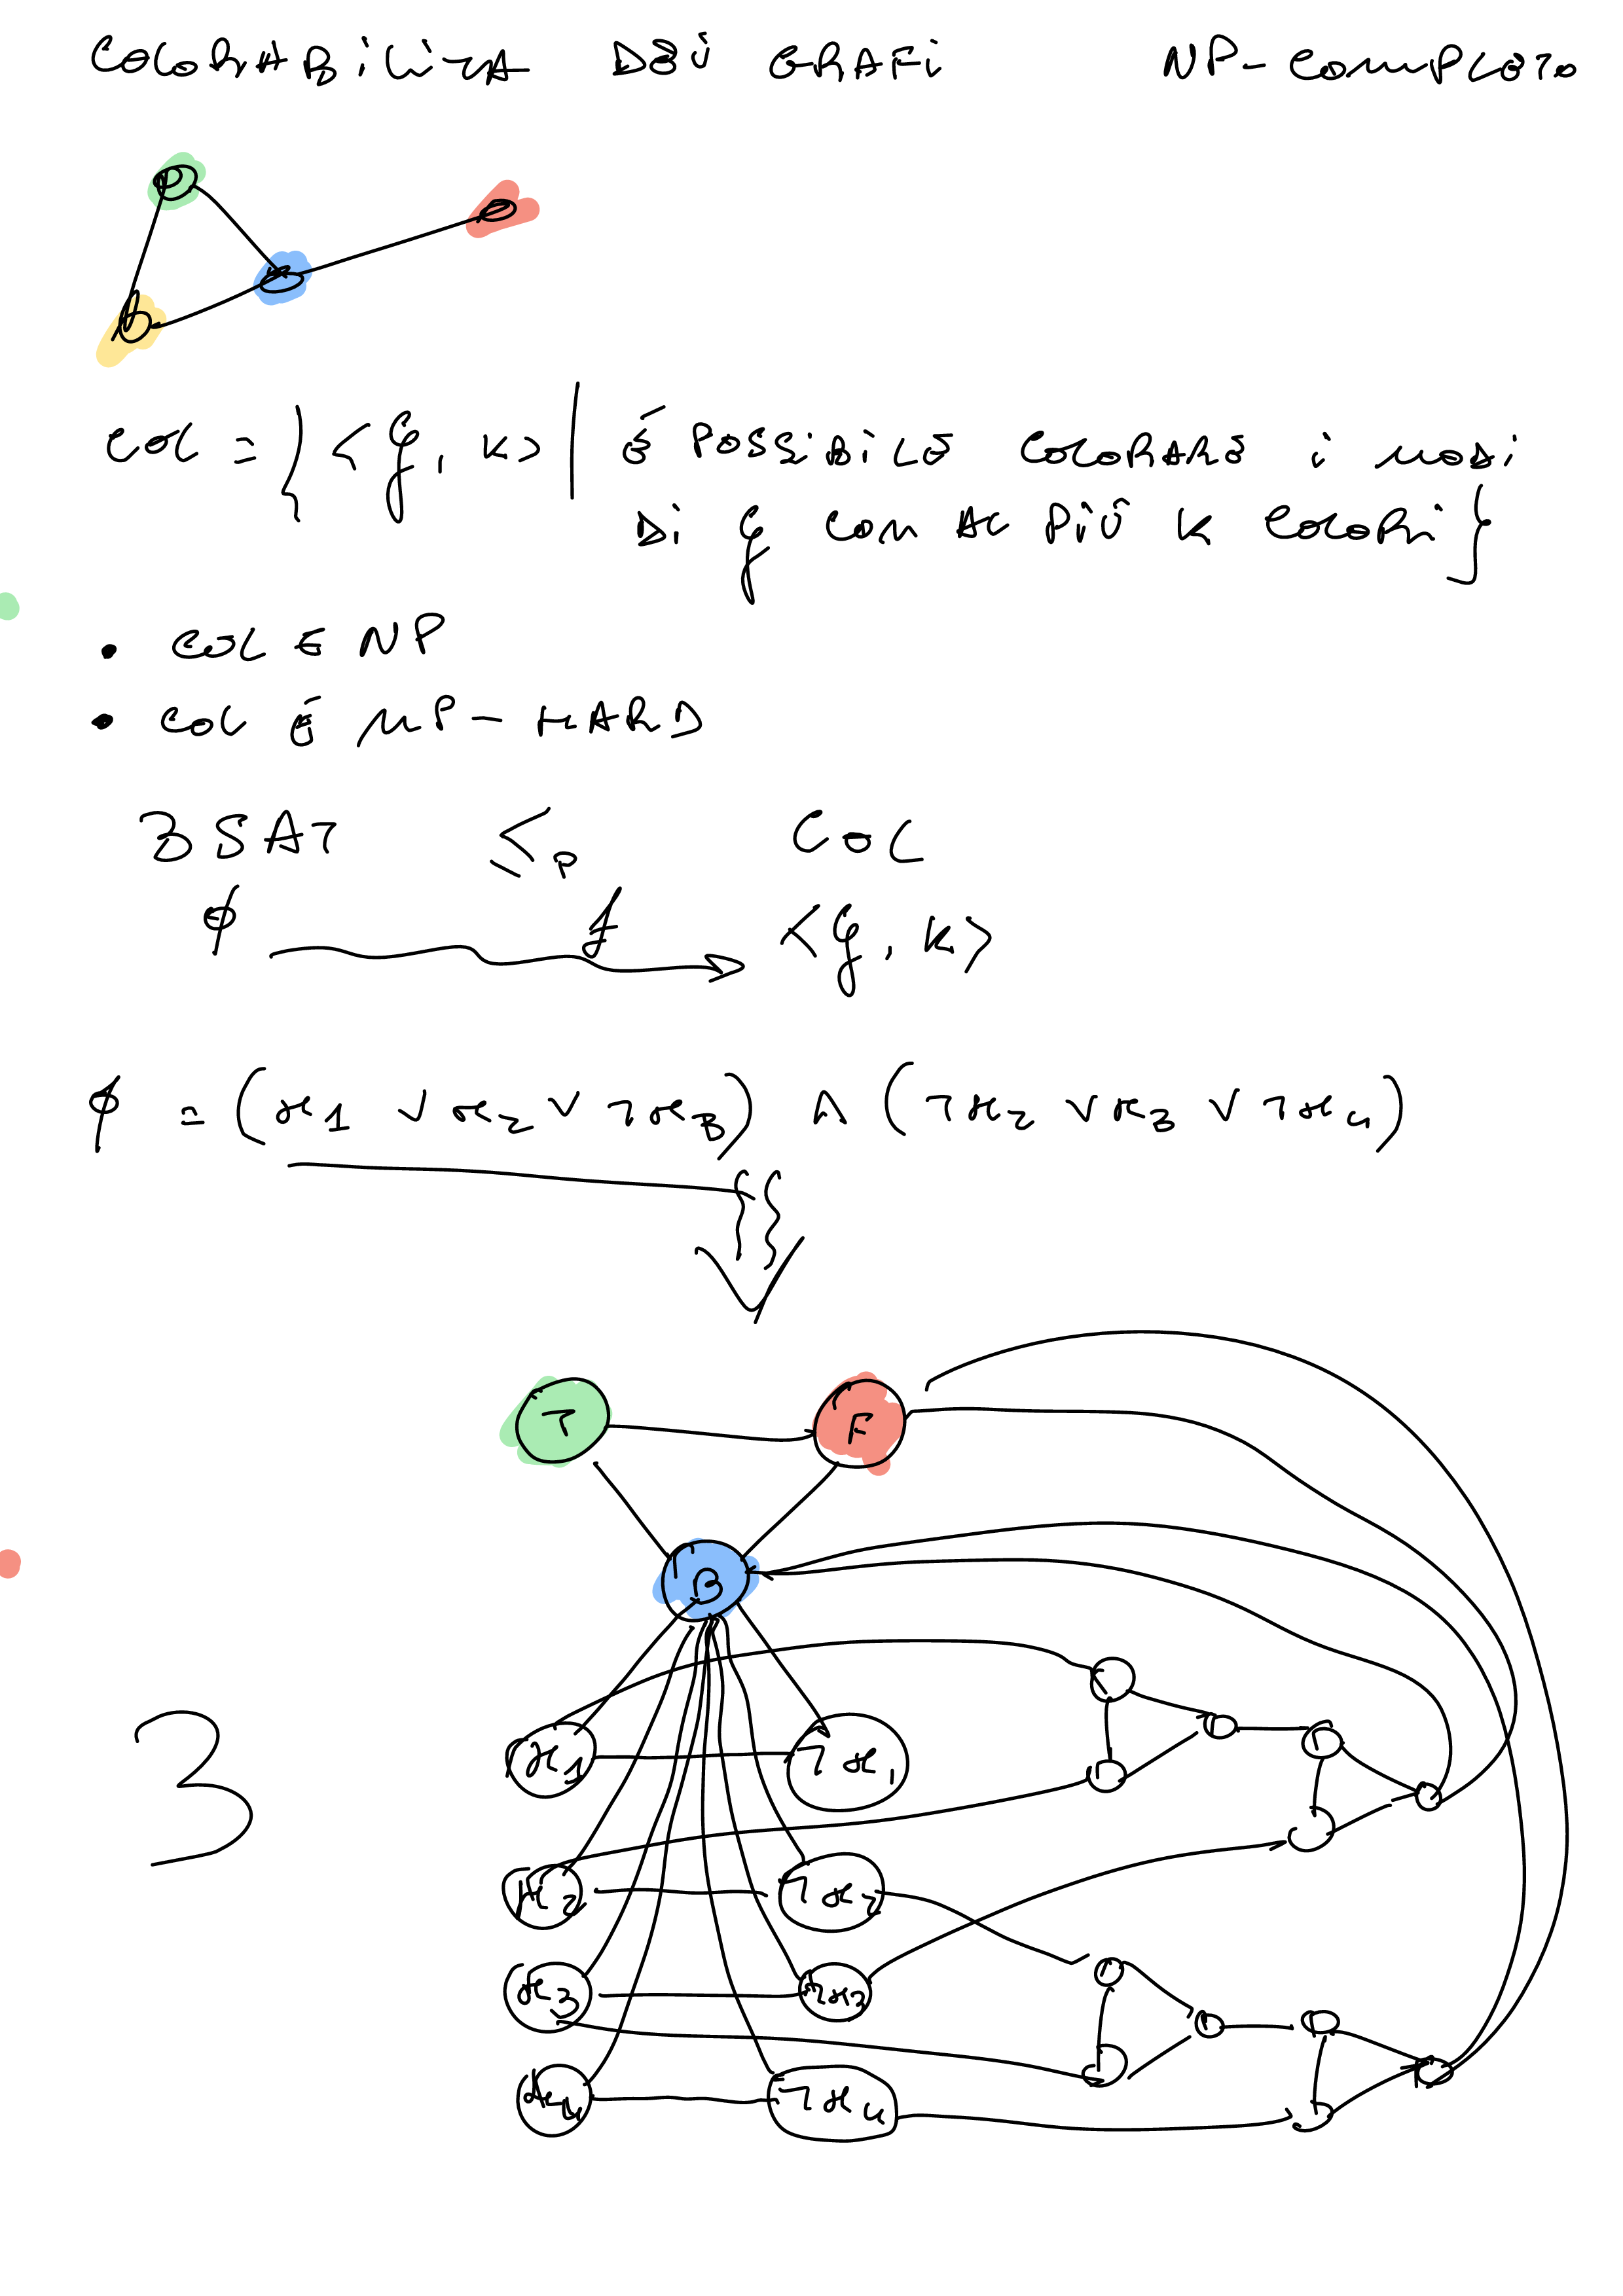 COLORABILITÀ DEI GRAFI NP-COMPLETO
COL = { <G, K> | É POSSIBILE COLORARE i NODI
Di G CON AL PIÙ K COLORi }
• COL ∈ NP
• COL É NP-HARD
3SAT ≤p COL
ϕ f <G, K>
ϕ = (x1 ∨ x2 ∨ ¬x3) ∧ (¬x2 ∨ x3 ∨ ¬x4)
T F
B
3
x1 ¬x1
x2 ¬x2
x3 ¬x3
x4 ¬x4